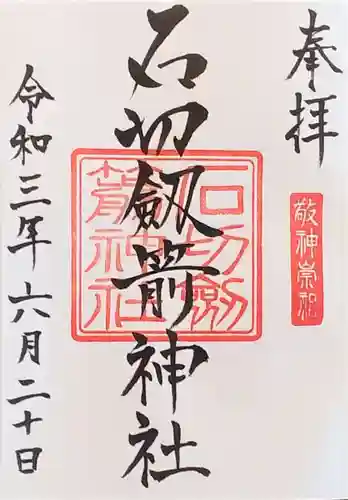 奉拝
敬神崇祖
石切劔箭神社
石切劔箭神社
令和三年六月二十日